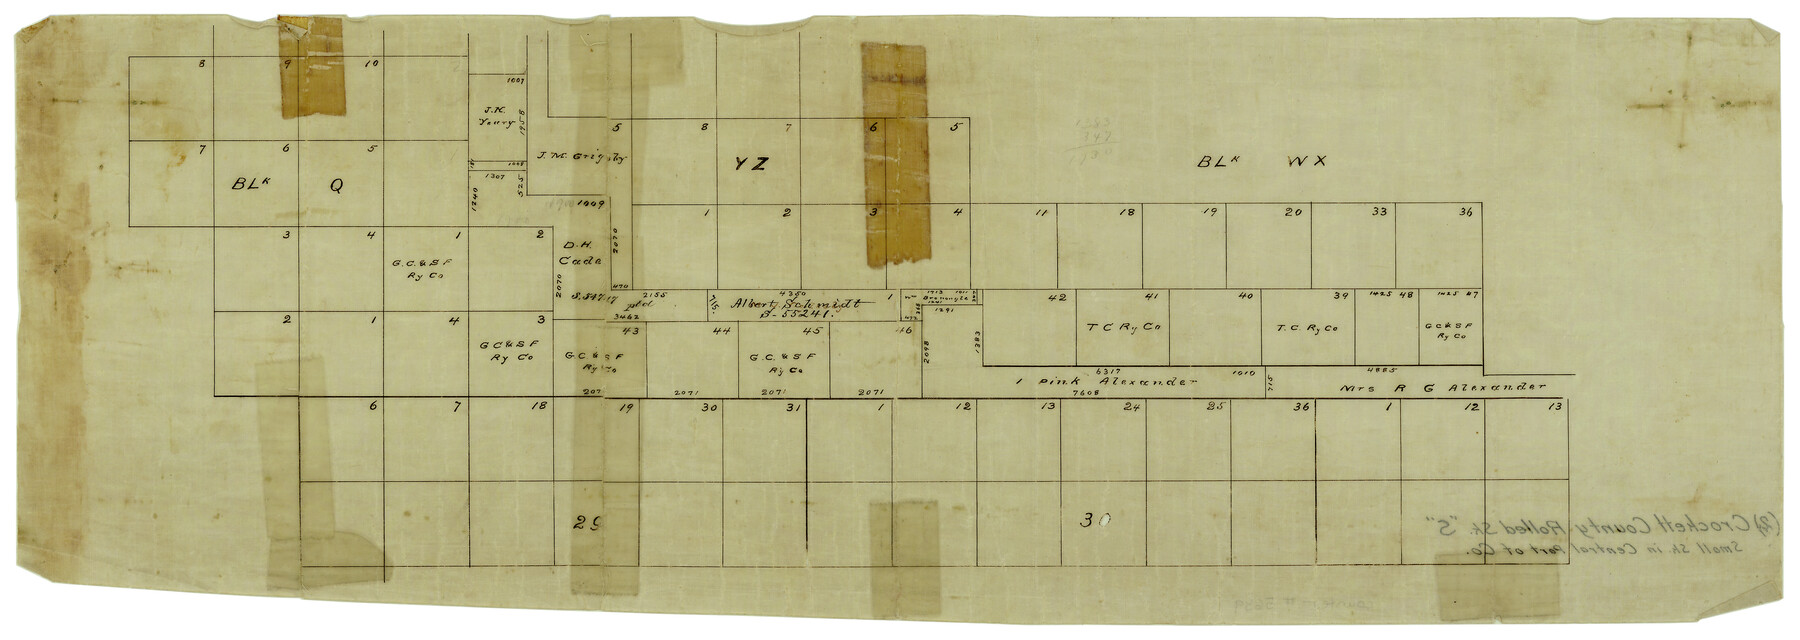 8 9 10
1009
J.K.
Young
1958
5 8 7 6 5
1383
347
J.M. Grigsby
7 6 5
BLK Q
YZ
BLK WX
1307
525
1240
1009
1 2 3 4 11 18 19 20 33 36
3 4 1 2
D.H.
Cade
2070
2070
G.C.&S.F
Ry Co
S.54717
pld
470
2155
4350
1
Albert Schmidt
B-55241.
3462
1713 1011
1291
42 41 40 39 1425 48 1425 47
2 1 4 3 43 44 45 46
T C Ry Co
T.C Ry Co
G C & S F
Ry Co
G C & S F
Ry Co
G.C & S F
Ry Co
G.C. & S F
Ry Co
2098
1383
6317 1010
4885
1 Pink Alexander
715
Mrs R G Alexander
207 2071 2071 2071
7608
6 7 18 19 30 31 1 12 13 24 25 36 1 12 13
29
30
(2) Crockett County Rolled Sk. "S"
Small Sk. in Central Part of Co.